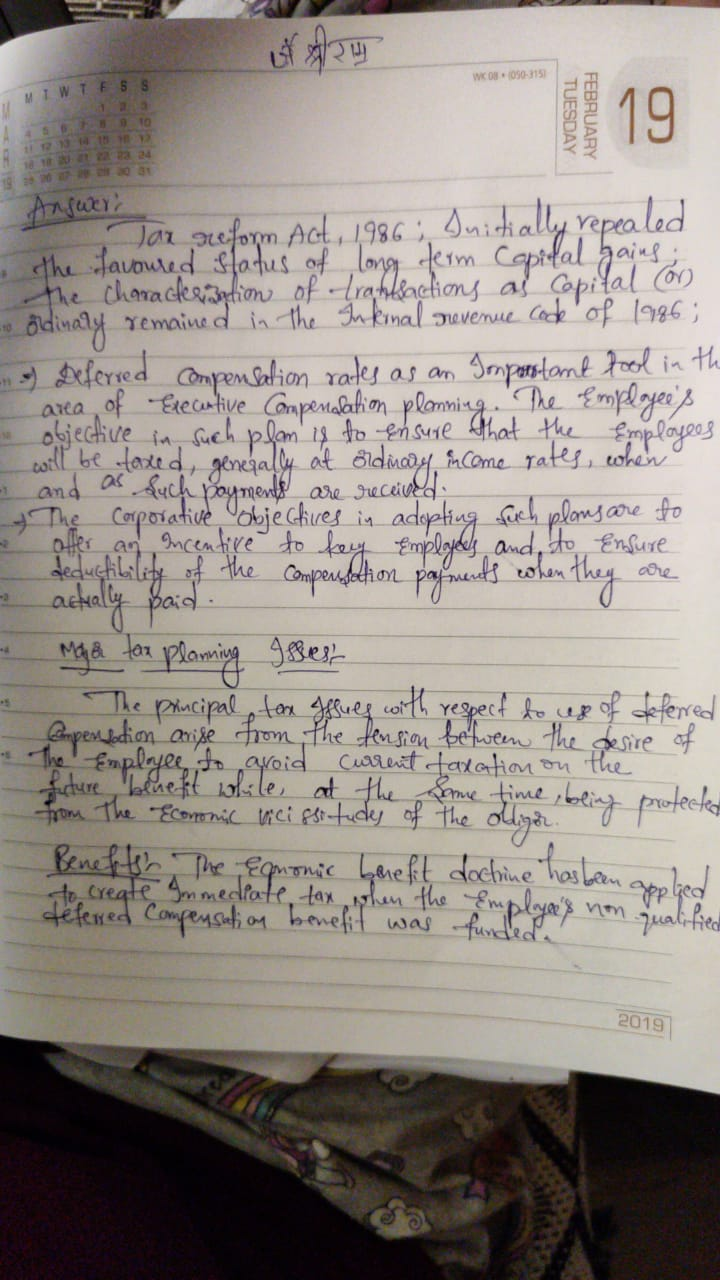 ॐ श्री राम
WK 08 • (050-315)
FEBRUARY
TUESDAY
19
M T W T F S S
1 2 3
4 5 6 7 8 9 10
11 12 13 14 15 16 17
18 19 20 21 22 23 24
25 26 27 28 29 30 31
MAR
19
Answer:
Tax reform Act, 1986; Initially repealed
the favoured Status of long term Capital gains;
The characterization of transactions as Capital (or)
Ordinary remained in the Internal revenue Code of 1986;
→ Deferred Compensation rates as an Important tool in th
area of Executive Compensation planning. The Employee's
objective in Such plan is to ensure that the Employees
will be taxed, generally at Ordinary income rates, when
and as Such payments are received.
→ The Corporative Objectives in adopting Such plans are to
offer an Incentive to key Employees and to Ensure
deductibility of the Compensation payments when they are
actually paid.
Major tax planning Isses:-
The principal tax Issues with respect to use of deferred
Compensation arise from the tension between the desire of
The Employee to avoid Current taxation on the
future benefit while, at the Same time, being protected
from The Economic vicissitudes of the obligor.
Benefits:- The Economic benefit doctrine has been applied
to create Immediate tax when the Employee's non-qualified
deferred Compensation benefit was funded.
2019